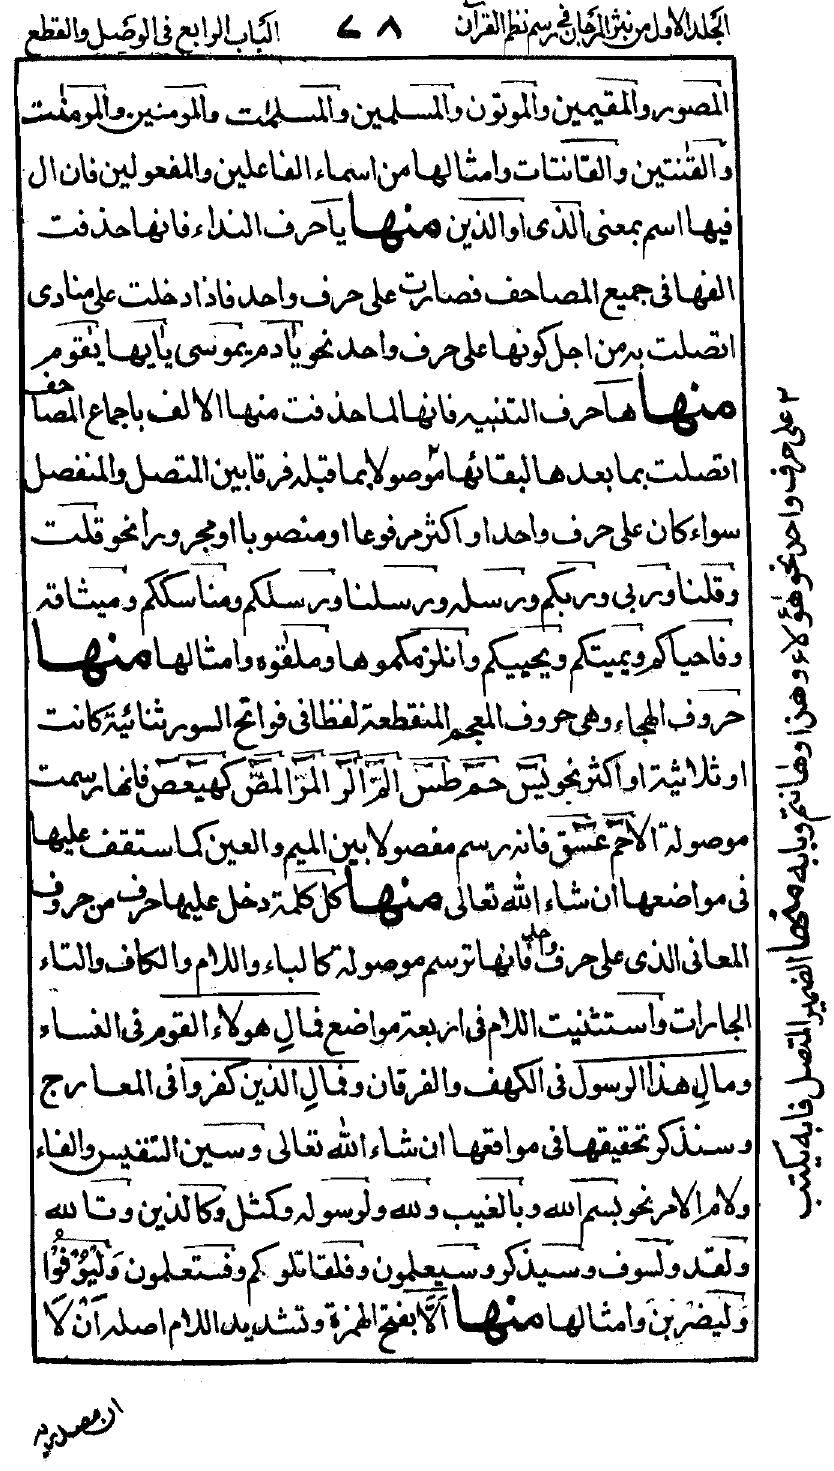 المجلد الاول من نثر المرجان في رسم نظم القرآن ٧٨ الباب الرابع فى الوصل والقطع
المصور والمقيمين والموتون والمسلمين والمسلمٰت والمومنين والمومنٰت
والقٰنتين والقانتات وامثالها من اسماء الفاعلين والمفعولين فان ال
فيها اسم بمعنى الذى او الذين منها يا حرف النداء فانها حذفت
الفها فى جميع المصاحف فصارت على حرف واحد فاذا دخلت على منادى
اتصلت به من اجل كونها على حرف واحد نحو يٰادم يٰموسى يٰايها يٰقوم
منها ها حرف التنبيه فانها لما حذفت منها الالف باجماع المصاحف
اتصلت بما بعدها لبقائها٢ موصولا بما قبله فرقا بين المتصل والمنفصل
سواء كان على حرف واحد او اكثر مرفوعا او منصوبا او مجرورا نحو قلت
وقلنا وربى وربكم ورسله ورسلنا ورسلكم ومناسككم وميثاقه
وفاحياكم ويميتكم ويحييكم وانلزمكموها وملٰقوه وامثالها منها
حروف الهجاء وهى حروف المعجم المنقطعة لفظا فى فواتح السور ثنائية كانت
او ثلاثية او اكثر نحو يٓس حٓم طٓس الٓم الٓر الٓمٓر الٓمٓص كٓهيٓعٓص فانها رسمت
موصولة الا حٓم عٓسٓق فانه رسم مفصولا بين الميم والعين كما ستقف عليها
فى مواضعها ان شاء الله تعالى منها كل كلمة دخل عليها حرف من حروف
المعانى الذى على حرف واحد فانها ترسم موصولة كالباء واللام والكاف والتاء
الجارات واستثنيت اللام فى اربعة مواضع فمالِ هولاء القوم فى النساء
ومالِ هذا الرسول فى الكهف والفرقان وفمالِ الذين كفروا فى المعارج
وسنذكر تحقيقها فى مواقعها ان شاء الله تعالى وسين التنفيس والفاء
ولام الامر نحو بسم الله وبالغيب ولله ولرسوله وكمثل وكالذين وتالله
ولقد ولسوف وسيذكر وسيعلمون وفلقاتلوكم وفستعلمون وَلْيُوْفُوْا
وَلْيضربْنَ وامثالها منها اَلَّا بفتح الهمزة وتشديد اللام اصله اَنْ لَا
٢ على حرف واحد نحو هٰؤلاء وهذا وهٰانتم وبابه منها الضمير المتصل فانه يكتب